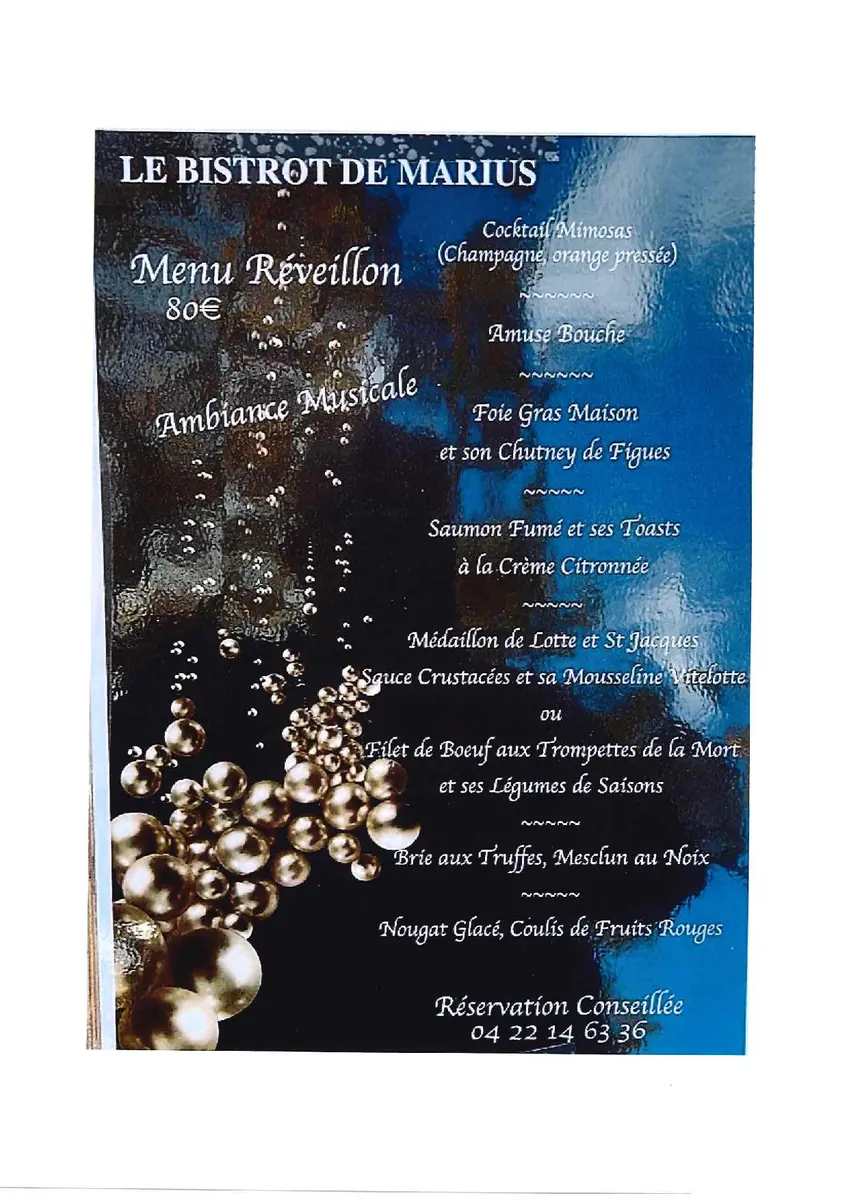 LE BISTROT DE MARIUS
Menu Réveillon
80€
Ambiance Musicale
Cocktail Mimosas
(Champagne, orange pressée)
~~~~~~
Amuse Bouche
~~~~~~
Foie Gras Maison
et son Chutney de Figues
~~~~~
Saumon Fumé et ses Toasts
à la Crème Citronnée
~~~~~
Médaillon de Lotte et St Jacques
Sauce Crustacées et sa Mousseline Vitelotte
ou
Filet de Boeuf aux Trompettes de la Mort
et ses Légumes de Saisons
~~~~~
Brie aux Truffes, Mesclun au Noix
~~~~~
Nougat Glacé, Coulis de Fruits Rouges
Réservation Conseillée
04 22 14 63 36